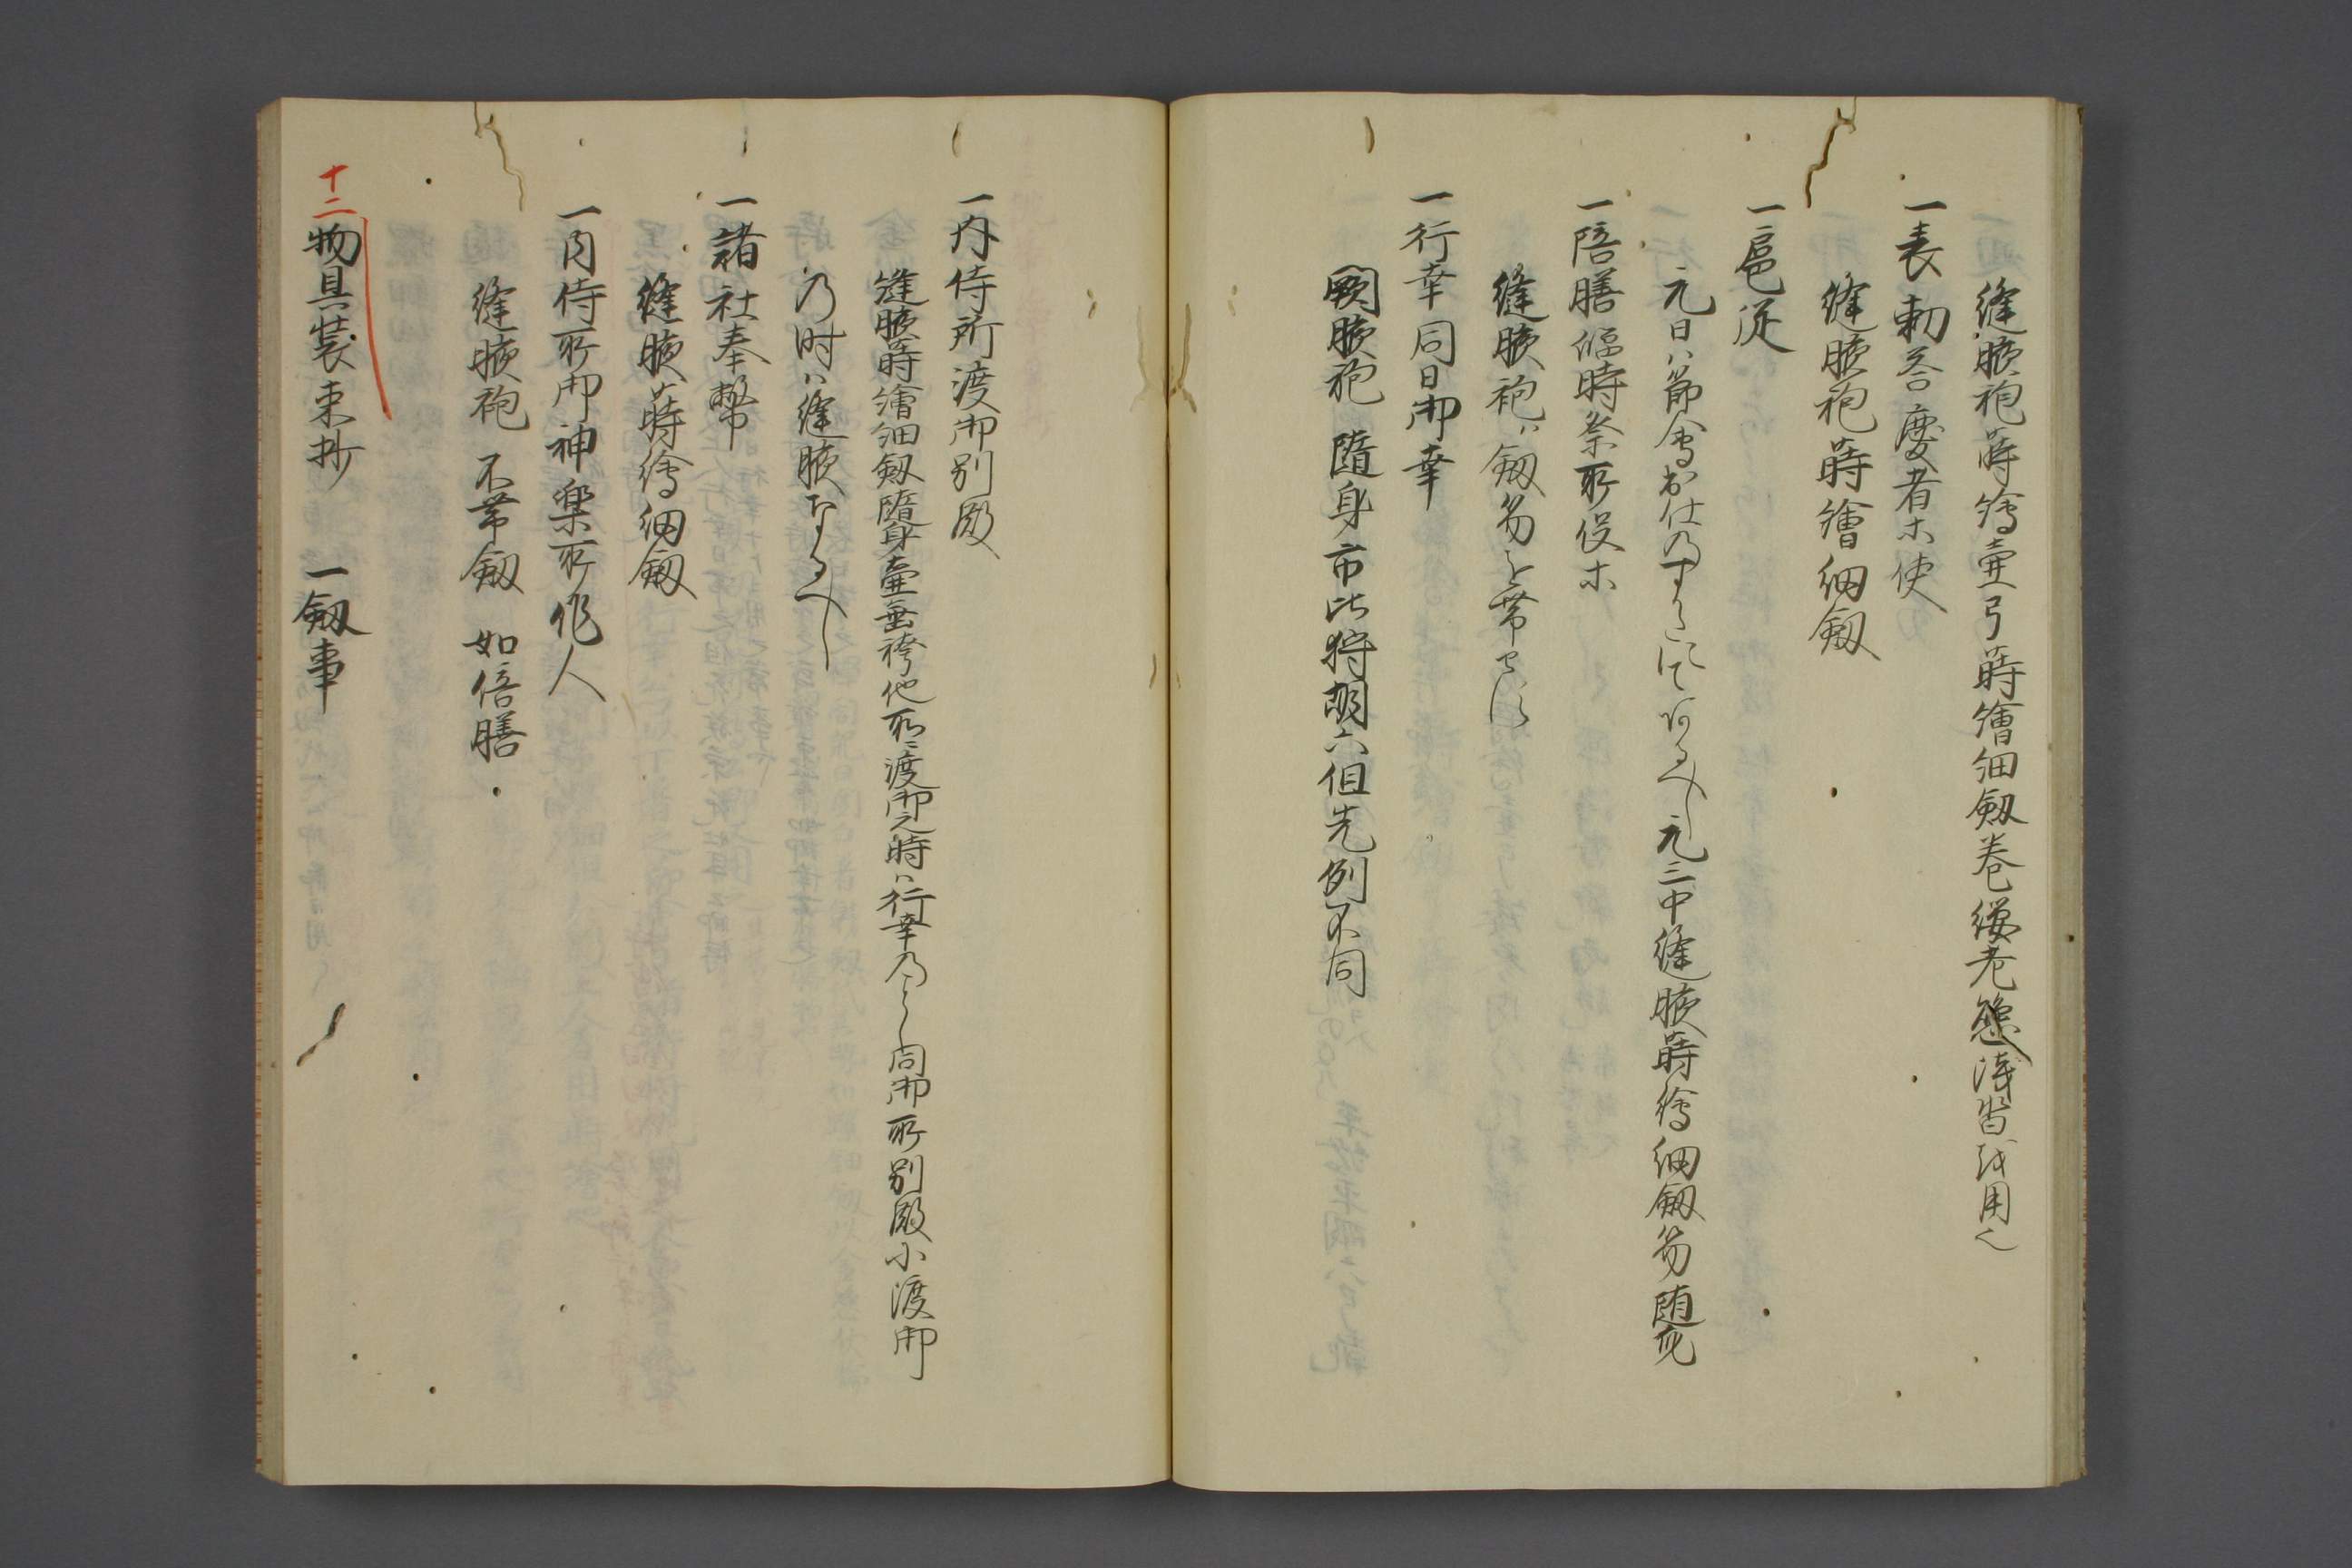 縫腋袍蒔繪壷弓蒔繪細釼巻纓老懸浅沓ヲ用之
一表勅答慶者木使
縫腋袍蒔繪細釼
一扈従
元日ハ節會出仕の中元三中縫腋蒔繪細釼笏随身
一陪膳臨時祭所役木
縫腋袍ハ釼笏を帯せす
一行幸同日御幸
闕腋袍 随身市比狩胡六但先例不同
一内侍所渡御別殿
縫腋蒔繪細釼随身壷垂袴他所ニ渡御之時ハ行幸のことし同御所別殿小渡御
の時ハ縫腋なるへし
一諸社奉幣
縫腋蒔繪細釼
一内侍所御神楽所作人
縫腋袍 不帯釼 如倍膳
十二 物具装束抄 一釼事